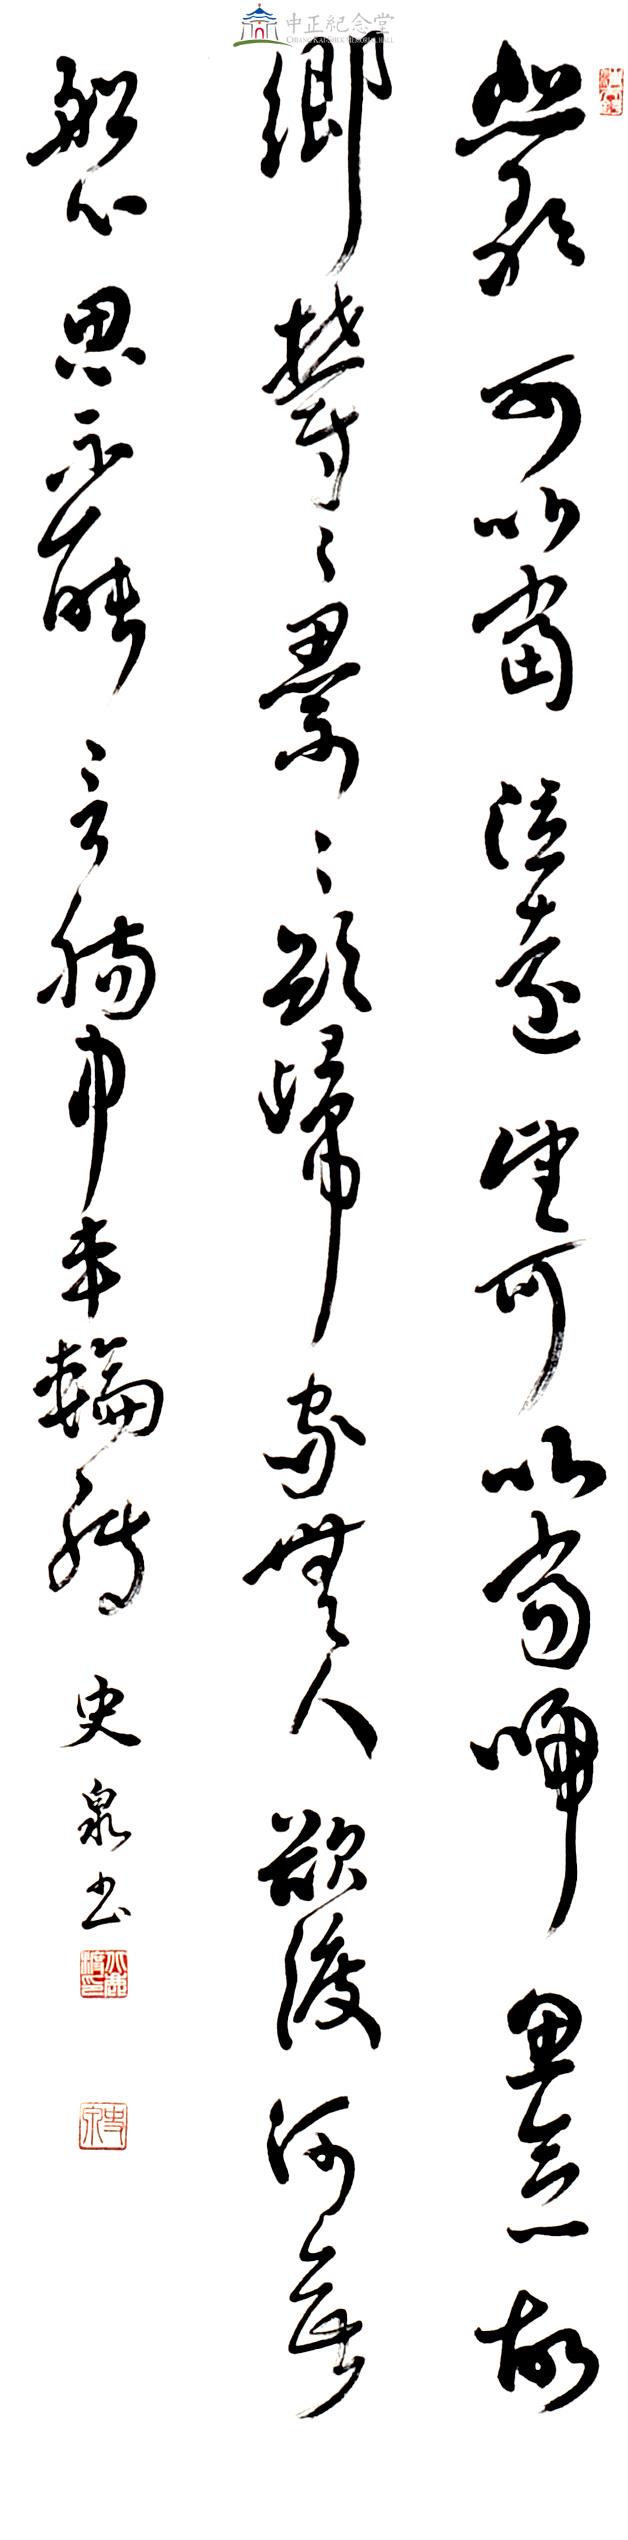 中正紀念堂
CHIANG KAI-SHEK MEMORIAL HALL
悲歌可以當泣遠望可以當歸思念故
鄉鬱々累々欲歸家無人欲渡河無
船心思不能言腸中車輪轉
史泉書